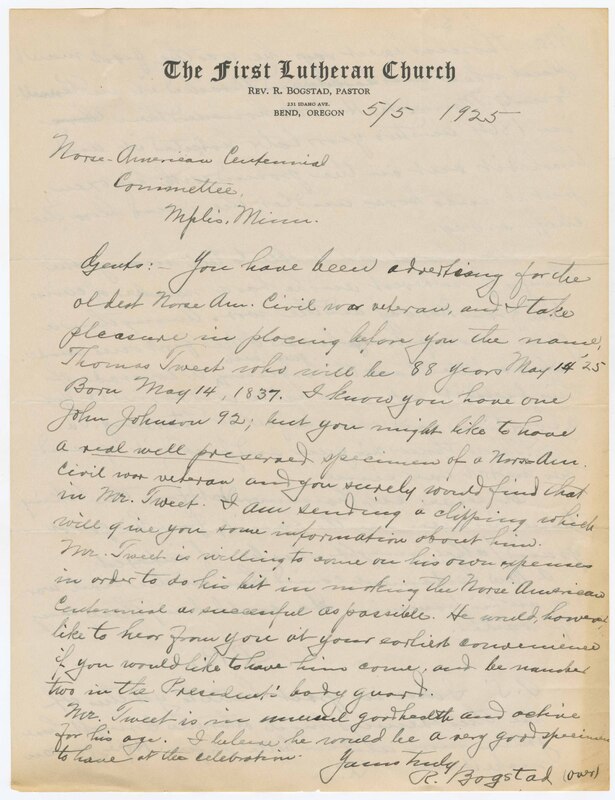 The First Lutheran Church
Rev. R. Bogstad, Pastor
231 Idaho Ave.
Bend, Oregon
5/5 1925
Norse-American Centennial
Committee,
Mplis. Minn.
Gents:- You have been advertising for the
oldest Norse Am. Civil war veteran, and I take
pleasure in placing before you the name,
Thomas Tweet who will be 88 years May 14 '25
Born May 14, 1837. I know you have one
John Johnson 92; but you might like to have
a real well preserved specimen of a Norse Am.
Civil war veteran and you surely would find that
in Mr. Tweet. I am sending a clipping which
will give you some information about him.
Mr. Tweet is willing to come on his own expenses
in order to do his bit in making the Norse American
Centennial as successful as possible. He would, however,
like to hear from you at your earliest convenience
if you would like to have him come, and be number
two in the President's body guard.
Mr. Tweet is in unusual good health and active
for his age. I believe he would be a very good specimen
to have at the celebration.
Yours truly
R. Bogstad (over)